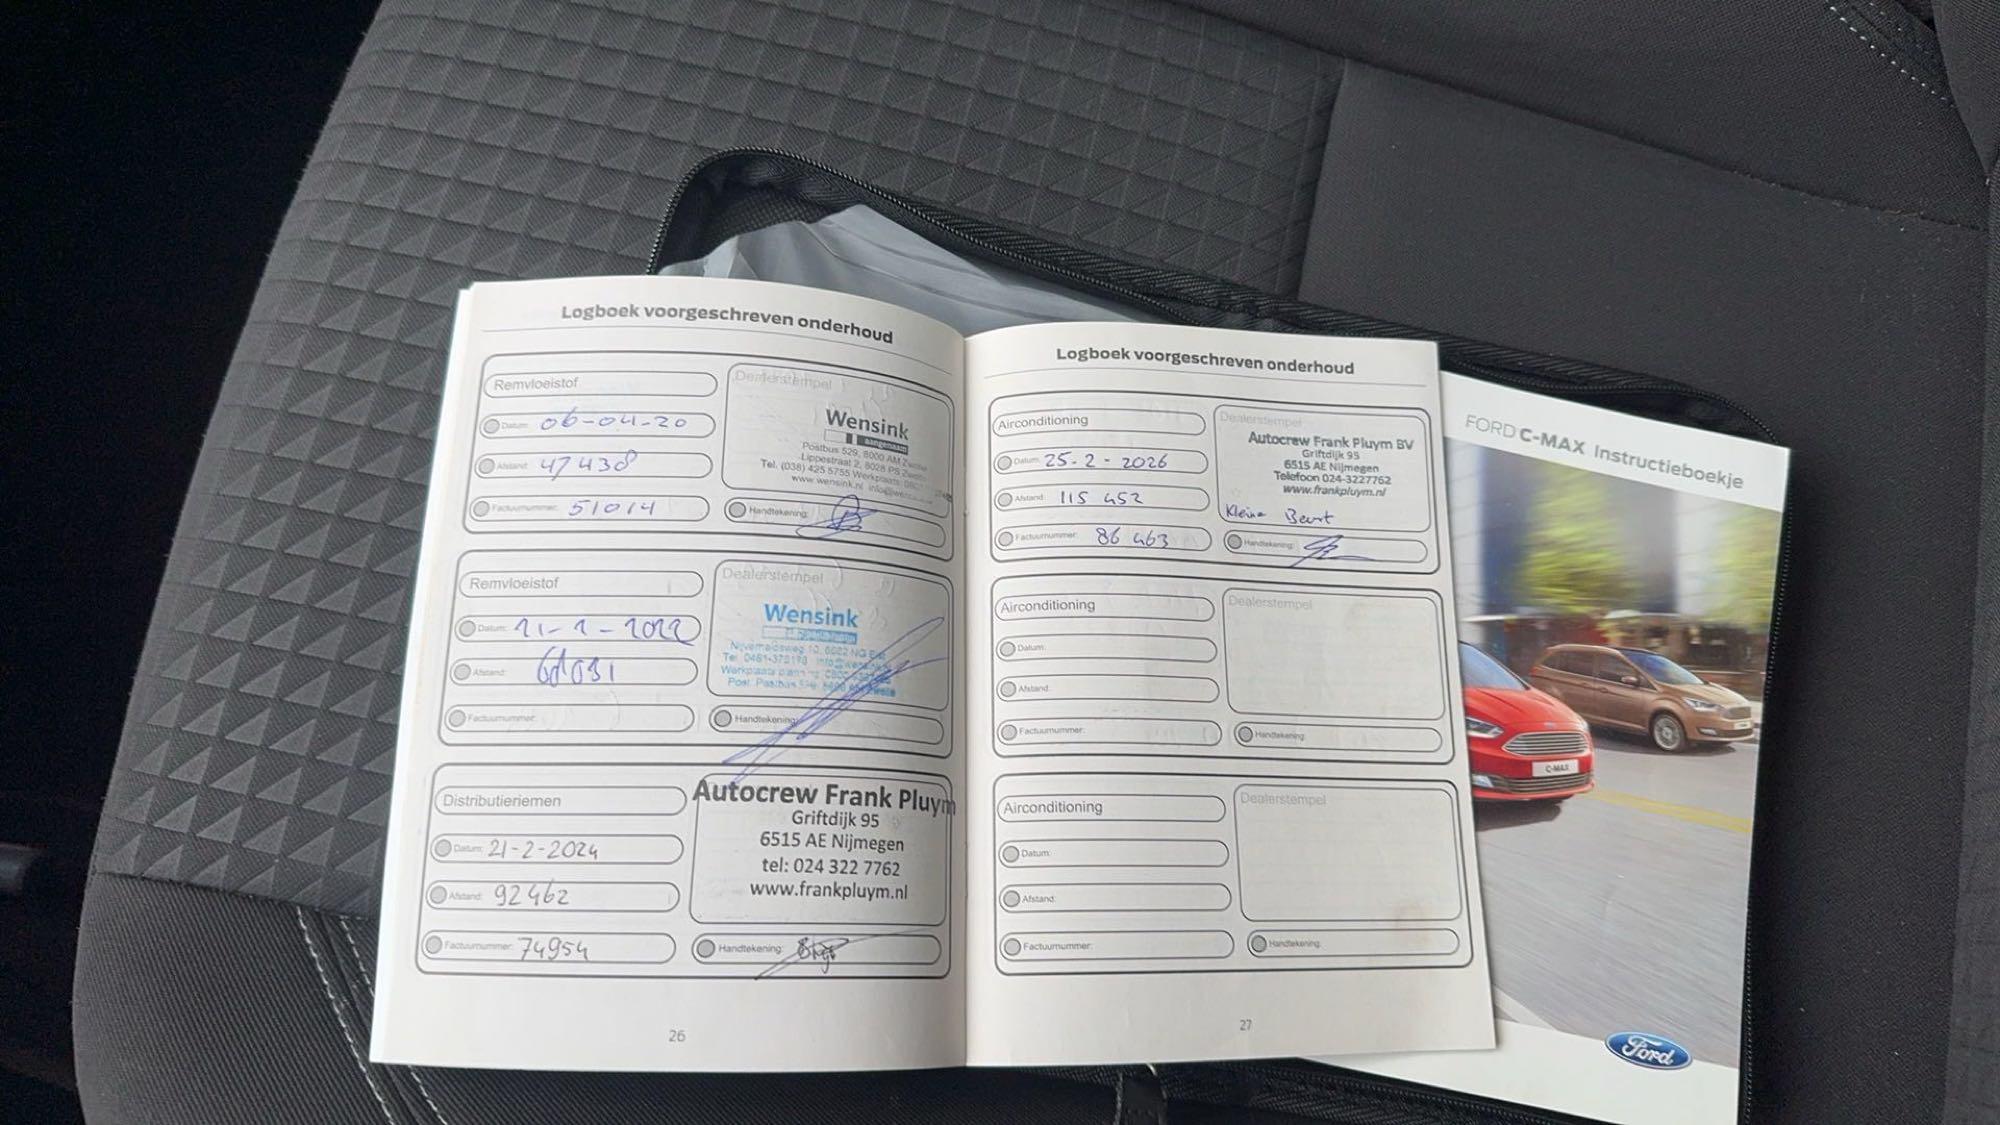 Logboek voorgeschreven onderhoud
Remvloeistof
Datum: 06-04-20
Afstand: 47438
Factuurnummer: 51014
Dealerstempel
Wensink
aangenaam
Postbus 529, 8000 AM
Lippestraat 2, 8028 PS
Tel. (038) 425 5755 Werkplaats:
www.wensink.nl
Handtekening:
Remvloeistof
Datum: 2022
Afstand:
Factuurnummer:
Dealerstempel
Wensink
Handtekening:
Distributieriemen
Datum: 21-2-2024
Afstand: 92462
Factuurnummer: 74954
Autocrew Frank Pluym
Griftdijk 95
6515 AE Nijmegen
tel: 024 322 7762
www.frankpluym.nl
Handtekening:
26
Logboek voorgeschreven onderhoud
Airconditioning
Datum: 25-2-2026
Afstand: 115 452
Factuurnummer: 86 463
Dealerstempel
Autocrew Frank Pluym BV
Griftdijk 95
6515 AE Nijmegen
Telefoon 024-3227762
www.frankpluym.nl
Kleine Beurt
Handtekening:
Airconditioning
Datum:
Afstand:
Factuurnummer:
Dealerstempel
Handtekening:
Airconditioning
Datum:
Afstand:
Factuurnummer:
Dealerstempel
Handtekening:
27
FORD C-MAX Instructieboekje
C-MAX
Ford